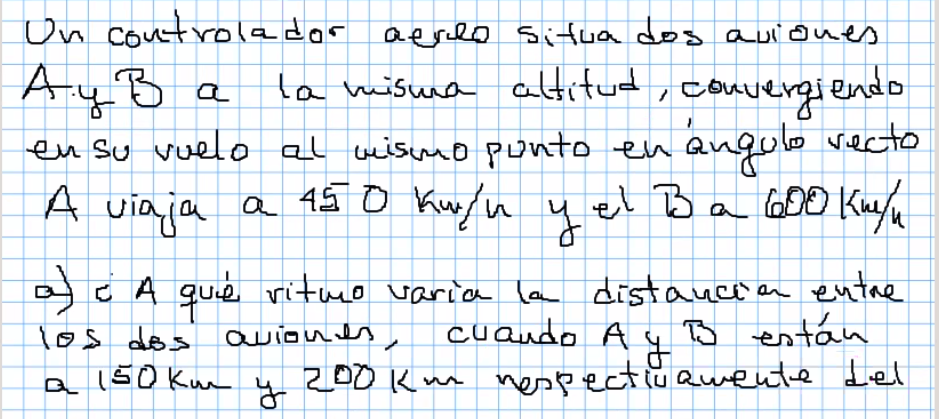 Un controlador aereo situa dos aviones
A y B a la misma altitud, convergiendo
en su vuelo al mismo punto en ángulo recto
A viaja a 450 Km/h y el B a 600 Km/h
a) ¿ A qué ritmo varia la distancia entre
los dos aviones, cuando A y B están
a 150 Km y 200 Km respectivamente del